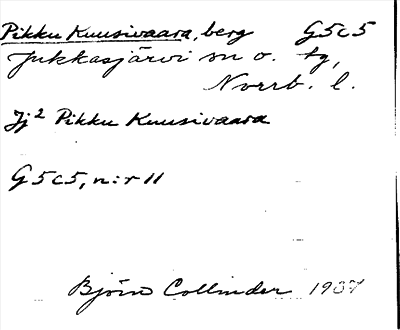 Pikku Kuusivaara, berg G5c5
Jukkasjärvi sn o. tg,
Norrb. l.
Jj² Pikku Kuusivaara
G5c5, n:r 11
Björn Collinder 1937